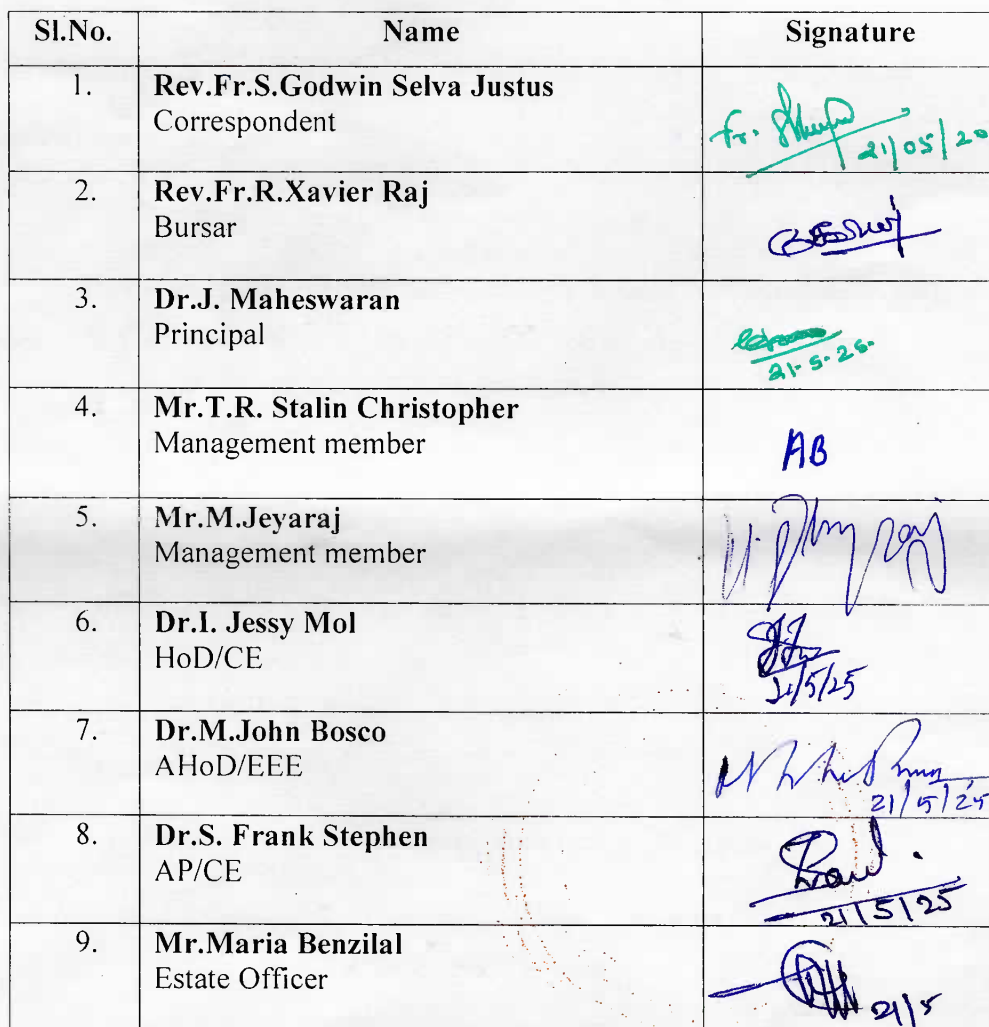 Sl.No. Name Signature
1. Rev.Fr.S.Godwin Selva Justus
Correspondent
Fr.
21/05/20
2. Rev.Fr.R.Xavier Raj
Bursar
3. Dr.J. Maheswaran
Principal
21-5-25.
4. Mr.T.R. Stalin Christopher
Management member
AB
5. Mr.M.Jeyaraj
Management member
6. Dr.I. Jessy Mol
HoD/CE
21/5/25
7. Dr.M.John Bosco
AHoD/EEE
21/5/25
8. Dr.S. Frank Stephen
AP/CE
21/5/25
9. Mr.Maria Benzilal
Estate Officer
21/5